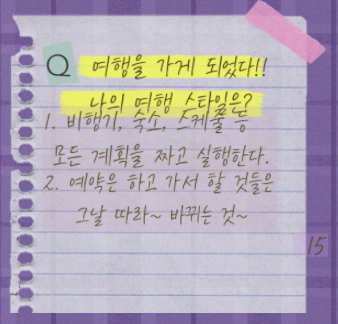 Q 여행을 가게 되었다!!
나의 여행 스타일은?
1. 비행기, 숙소, 스케줄 등
모든 계획을 짜고 실행한다.
2. 예약은 하고 가서 할 것들은
그날 따라~ 바뀌는 것~
15